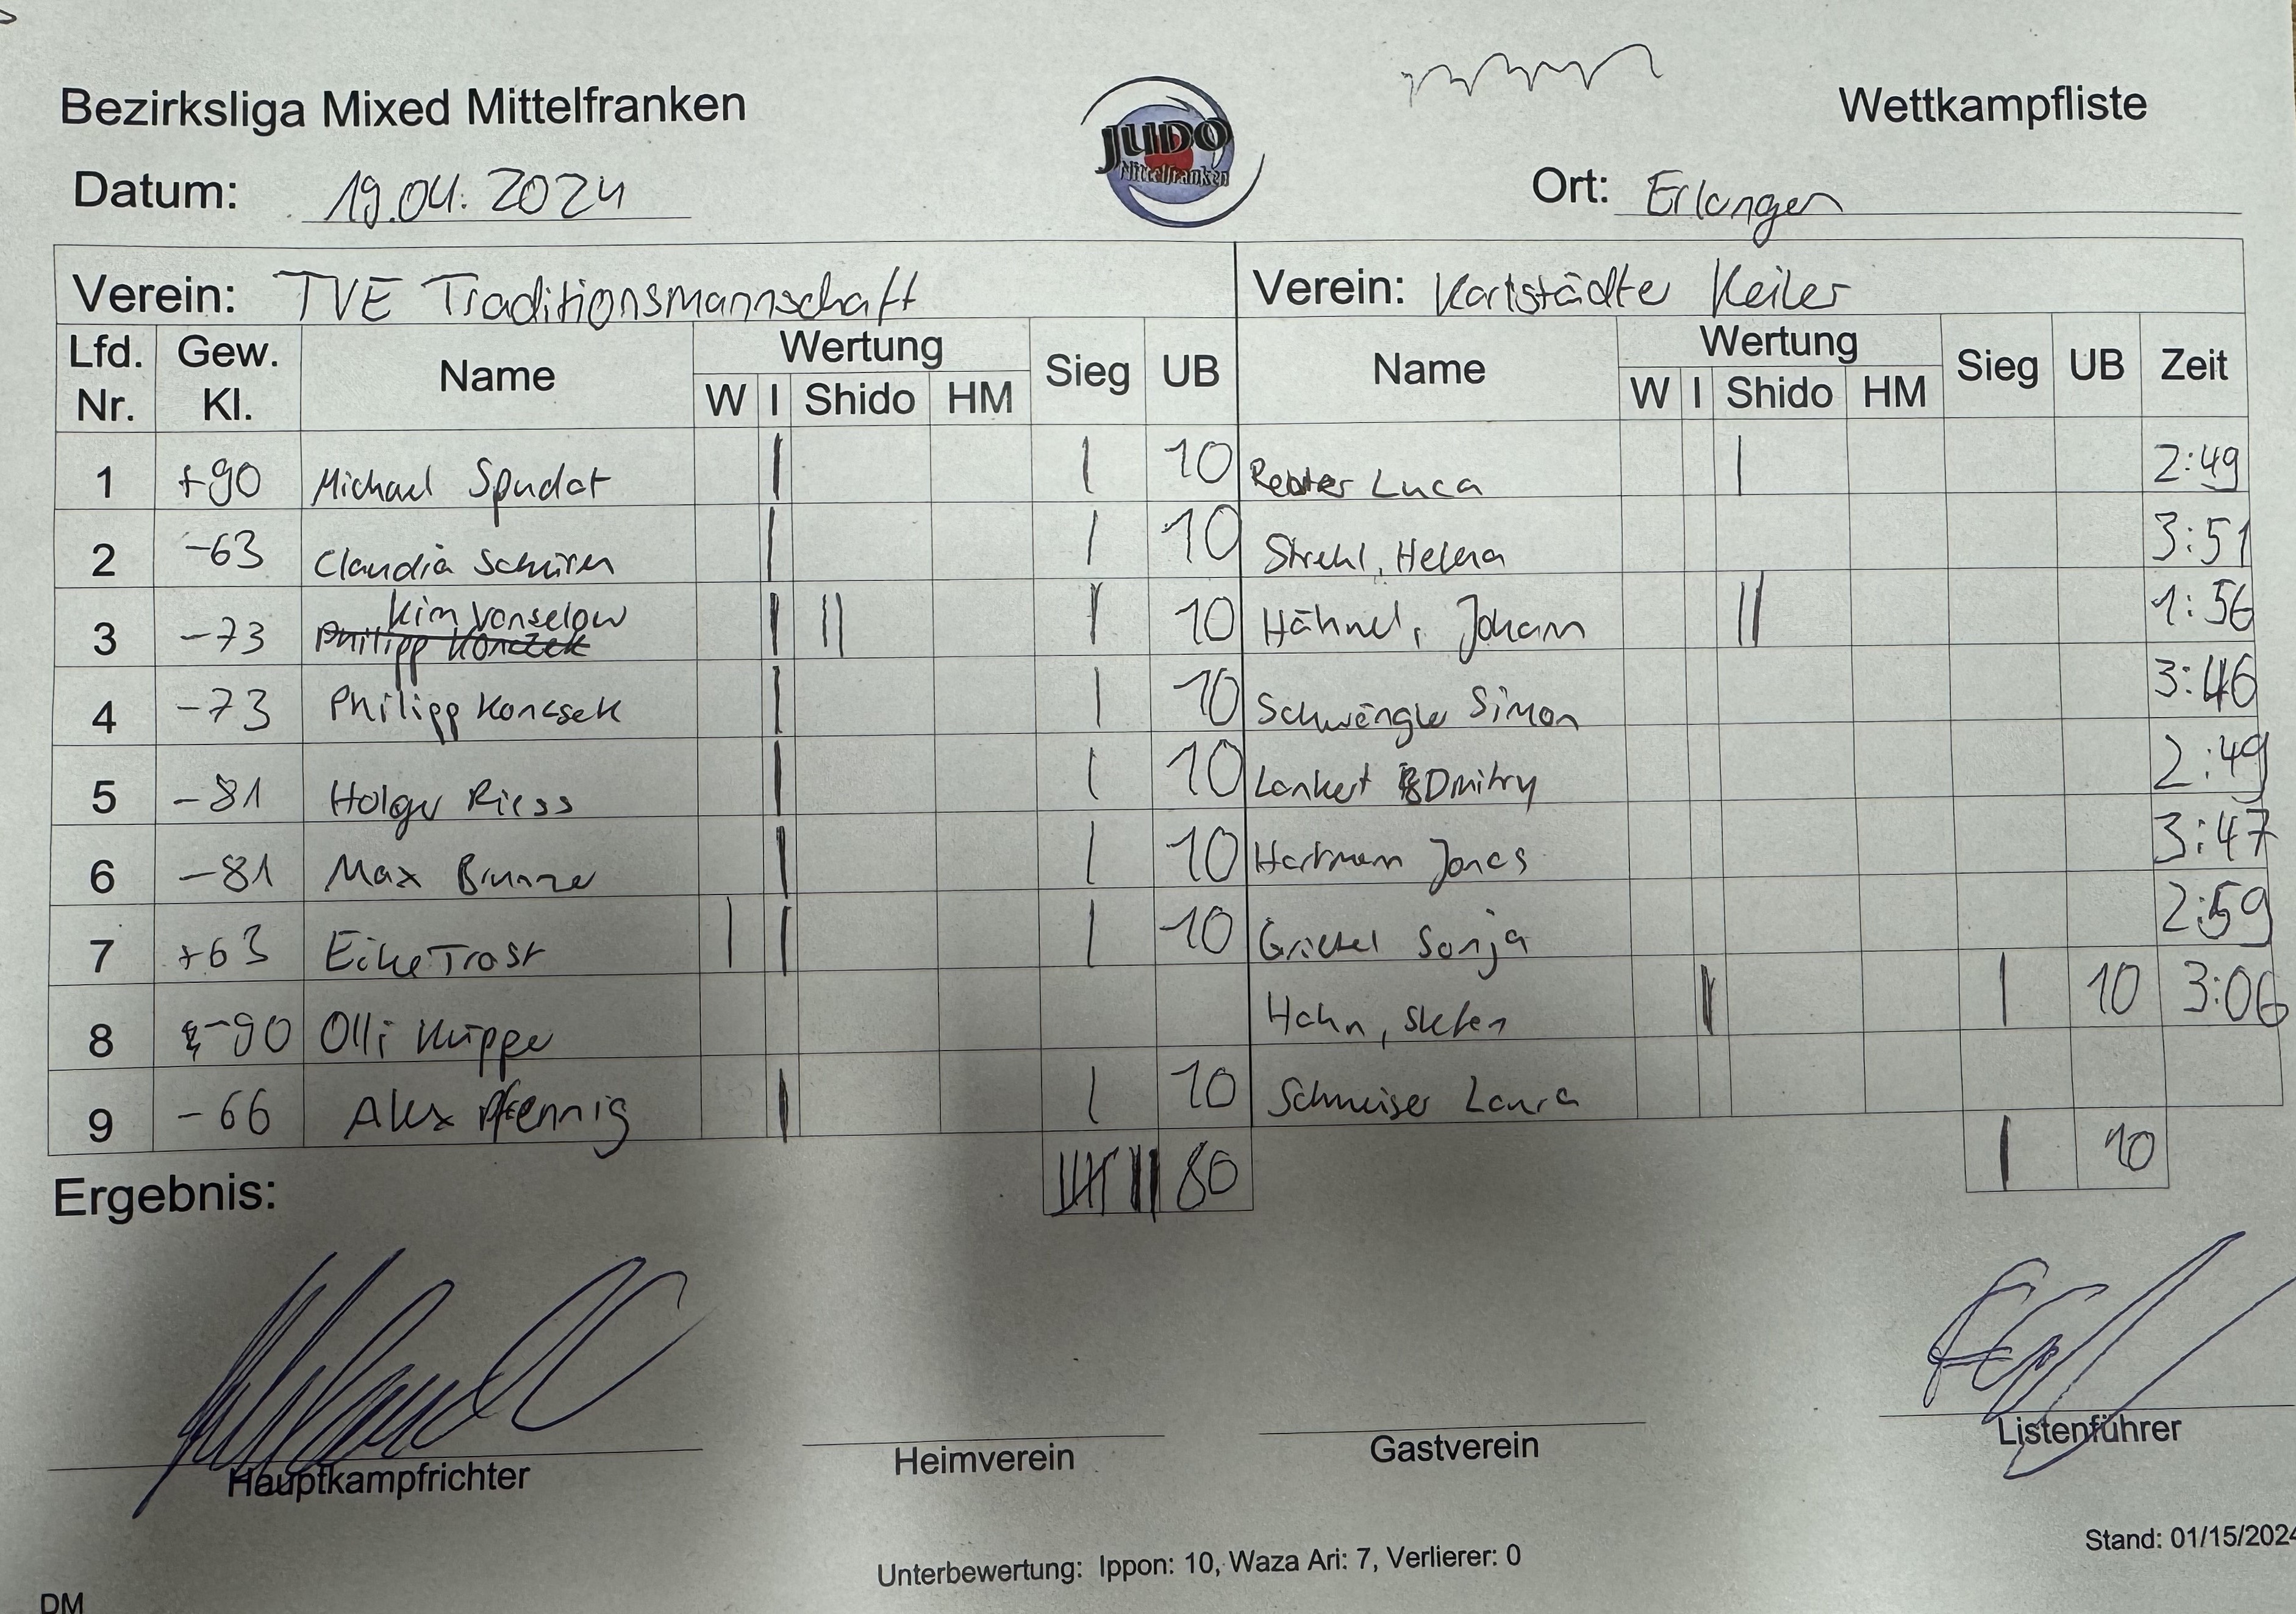 Bezirksliga Mixed Mittelfranken
JUDO
Mittelfranken
Wettkampfliste
Datum: 19.04.2024
Ort: Erlangen
Verein: TVE Traditionsmannschaft Verein: Karlstädter Keiler
Lfd. Nr. Gew. Kl. Name Wertung W I Shido HM Sieg UB Name Wertung W I Shido HM Sieg UB Zeit
1 +90 Michael Spudat I I 10 Luca I 2:49
2 -63 Claudia Schüren I I 10 Strehl, Helena 3:51
3 -73 Kim Vanselow I II I 10 Hähnel, Johann II 1:56
4 -73 Philipp Koncsek I I 10 Schwengler Simon 3:46
5 -81 Holger Riess I I 10 Lankert Dmitry 2:49
6 -81 Max I I 10 Hartmann Jonas 3:47
7 +63 Eike Trost I I I 10 Sonja 2:59
8 -90 Olli Küpper Hahn, Stefan I I 10 3:06
9 -66 Alex Pfennig I I 10 Schmeiser Laura
Ergebnis: IIIII III 80 I 10
Hauptkampfrichter Heimverein Gastverein Listenführer
Stand: 01/15/2024
Unterbewertung: Ippon: 10, Waza Ari: 7, Verlierer: 0
DM